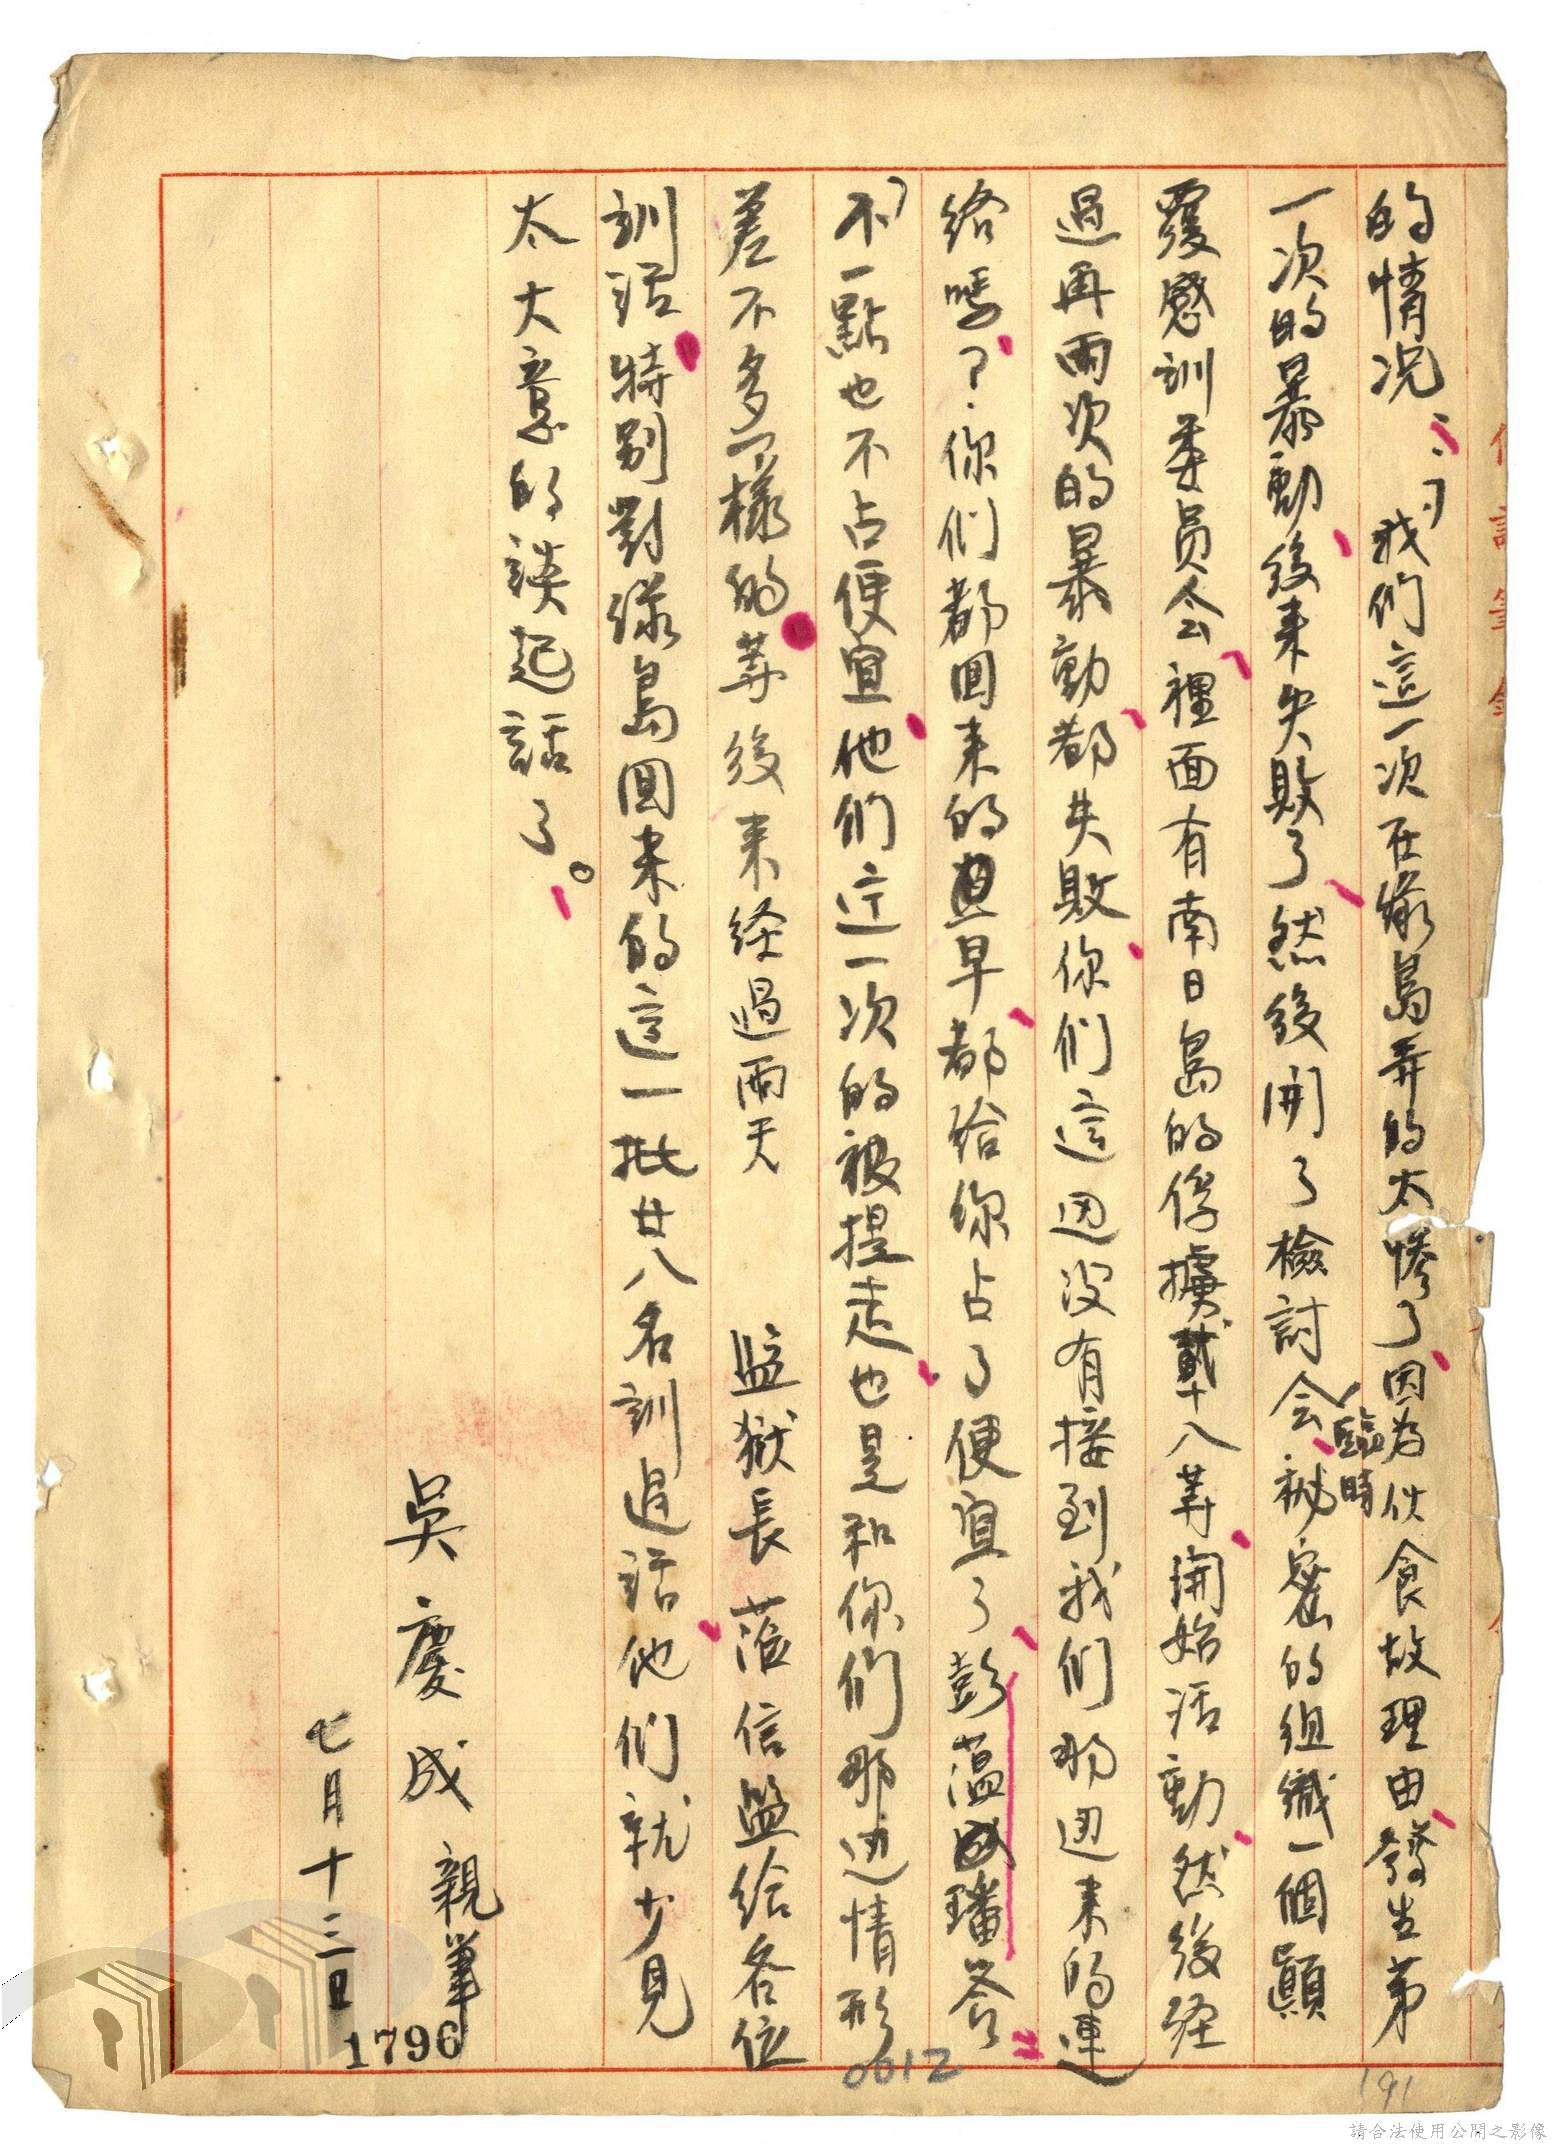 的情况：「我们這一次在綠島弄的太慘了因為伙食故理由發生第
一次的暴動後来失敗了然後開了檢討会臨時秘密的组織一個顛
覆感訓委员会裡面有南日島的俘擄戴十八等開始活動然後经
過再兩次的暴動都失敗你们這边没有接到我们那边来的連
络嗎？你们都回来的早都给你占了便宜了彭蓝璠答
「不一點也不占便宜他们這一次的被提走也是和你们那边情形
差不多一樣的等後来经過兩天　監獄長蒞信監给各位
訓活特别對绿島回来的這一批廿八名訓過話他们就少見
太大意的談起話了。
吳慶成親筆
七月十三日
1796
0612
191
請合法使用公開之影像